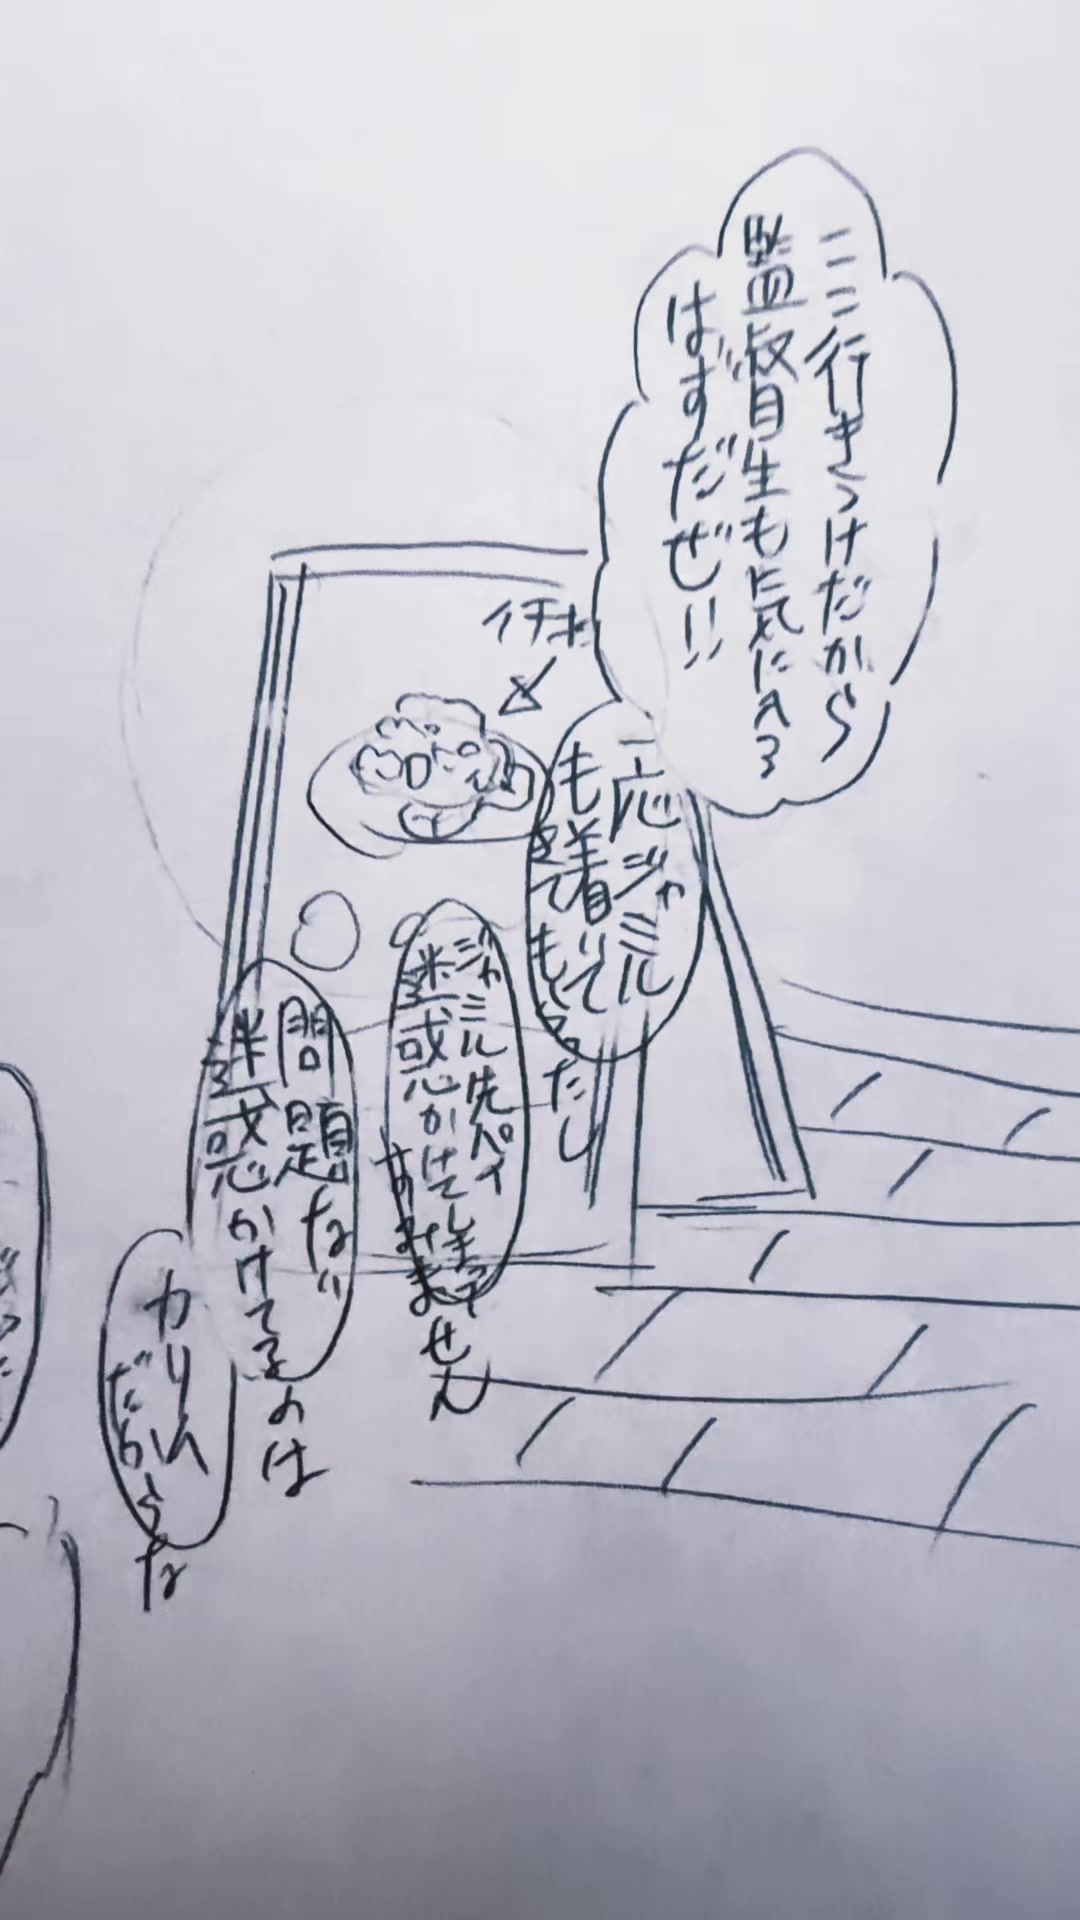 ここ行きつけだから
監督生も気に入る
はずだぜ!!
一応ジャミル
も着いて
きてもらったし
イチオシ
ジャミル先パイ
迷惑かけてしまって
すみません
問題ない
迷惑かけてるのは
カリム
だからな